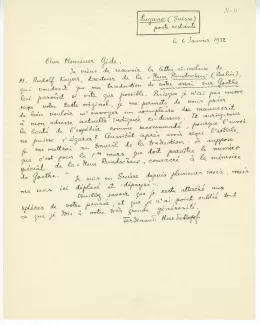 Lugano (Suisse)
poste restante
le 6 Janvier 1932
Cher Monsieur Gide,
Je viens de recevoir la lettre ci-incluse de
M. Rudolf Kayser, directeur de la "Neue Rundschau" (Berlin),
qui voudrait que ma traduction de votre essai sur Goethe
lui parvînt si vite que possible. Puisque je n'ai pas encore
reçu votre texte original, je me permets de vous prier
de bien vouloir m'envoyer un exemplaire du manuscrit
à mon adresse actuelle indiquée ci-dessus. Et
la bonté de l'expédier comme recommandé, puisque l'envoi
ne puisse s'égarer. Aussitôt après avoir reçu l'article,
je me mettrai au travail de la traduction. Je suppose
que c'est pour le 1er mars que doit paraître le numéro
spécial de la "Neue Rundschau", consacré à la mémoire
de Goethe.
Je suis en Suisse depuis plusieurs mois, mais
me sens ici déplacé et dépaysé.
Veuillez savoir que je reste attaché aux
sphères de votre pensée, et que je n'ai point oublié tout
ce que je dois à votre très grande générosité.
Ferdinand Hardekopf